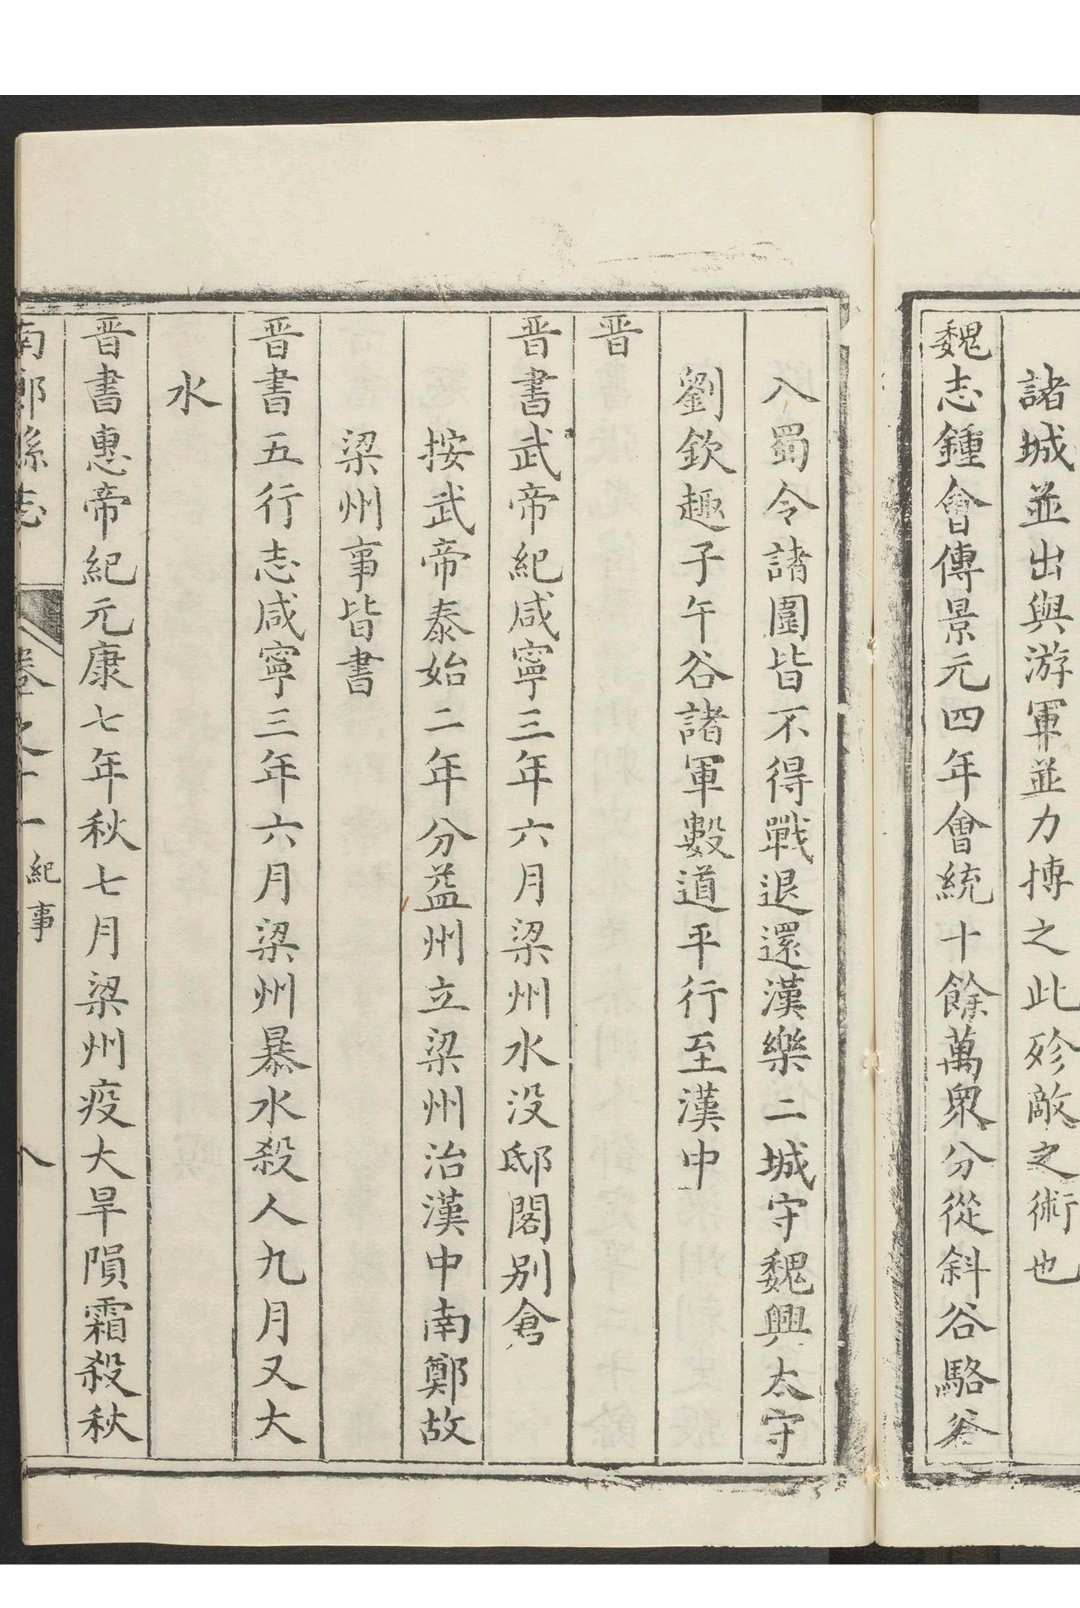 諸城並出與游軍並力搏之此殄敵之術也
魏志鍾會傳景元四年會統十餘萬衆分從斜谷駱谷
入蜀令諸圍皆不得戰退還漢樂二城守魏興太守
劉欽趣子午谷諸軍數道平行至漢中
晋
晋書武帝紀咸寧三年六月梁州水没邸閣别倉
按武帝泰始二年分益州立梁州治漢中南鄭故
梁州事皆書
晋書五行志咸寧三年六月梁州暴水殺人九月又大
水
晋書惠帝紀元康七年秋七月梁州疫大旱隕霜殺秋
南鄭縣志 卷之十一 紀事 八